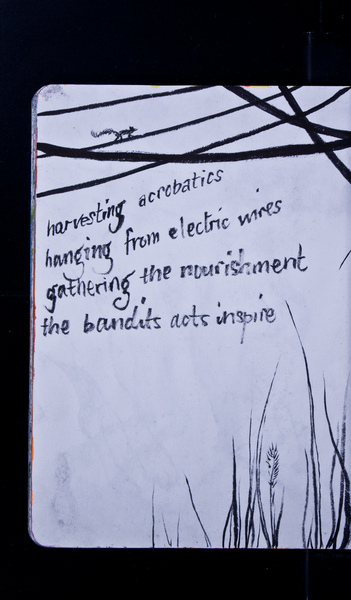 harvesting acrobatics
hanging from electric wires
gathering the nourishment
the bandits acts inspire